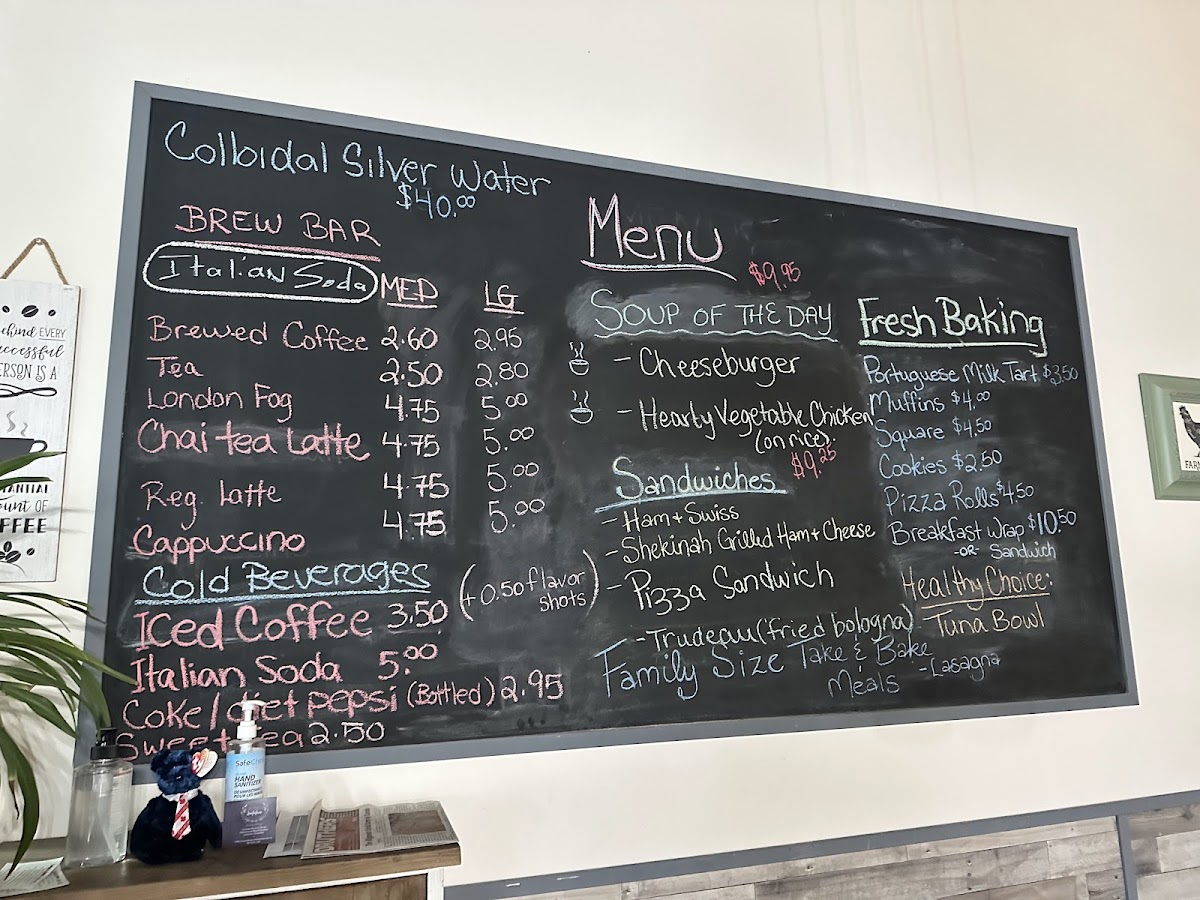 Colloidal Silver Water
$40.00
BREW BAR
Italian Soda
MED LG
Brewed Coffee 2.60 2.95
Tea 2.50 2.80
London Fog 4.75 5.00
Chai tea Latte 4.75 5.00
Reg. Latte 4.75 5.00
Cappuccino 4.75 5.00
Cold Beverages
(+ 0.50 flavor
shots)
Iced Coffee 3.50
Italian Soda 5.00
Coke/diet pepsi (Bottled) 2.95
Sweet tea 2.50
Menu
$9.95
SOUP OF THE DAY
- Cheeseburger
- Hearty Vegetable Chicken
(on rice)
$9.25
Sandwiches
- Ham + Swiss
- Shekinah Grilled Ham + Cheese
- Pizza Sandwich
- Trudeau (fried bologna)
Family Size Take & Bake
Meals
- Lasagna
Fresh Baking
Portuguese Milk Tart $3.50
Muffins $4.00
Square $4.50
Cookies $2.50
Pizza Rolls $4.50
Breakfast Wrap $10.50
-OR- Sandwich
Healthy Choice:
Tuna Bowl
EVERY
IS A
OF
SafeCare
HAND
SANITIZER
FARM